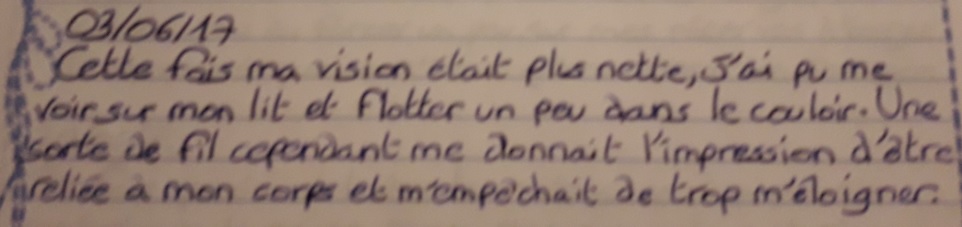 03/06/17
Cette fois ma vision était plus nette, J'ai pu me
voir sur mon lit et flotter un peu dans le couloir. Une
sorte de fil cependant me donnait l'impression d'être
reliée à mon corps et m'empêchait de trop m'éloigner.